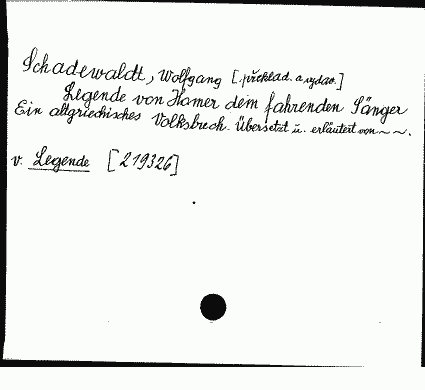 Schadewaldt, Wolfgang [překlad. a vydav.]
Legende von Homer dem fahrenden Sänger
Ein altgriechisches Volksbuch. Übersetzt u. erläutert von ~ ~.
v. Legende [219326]